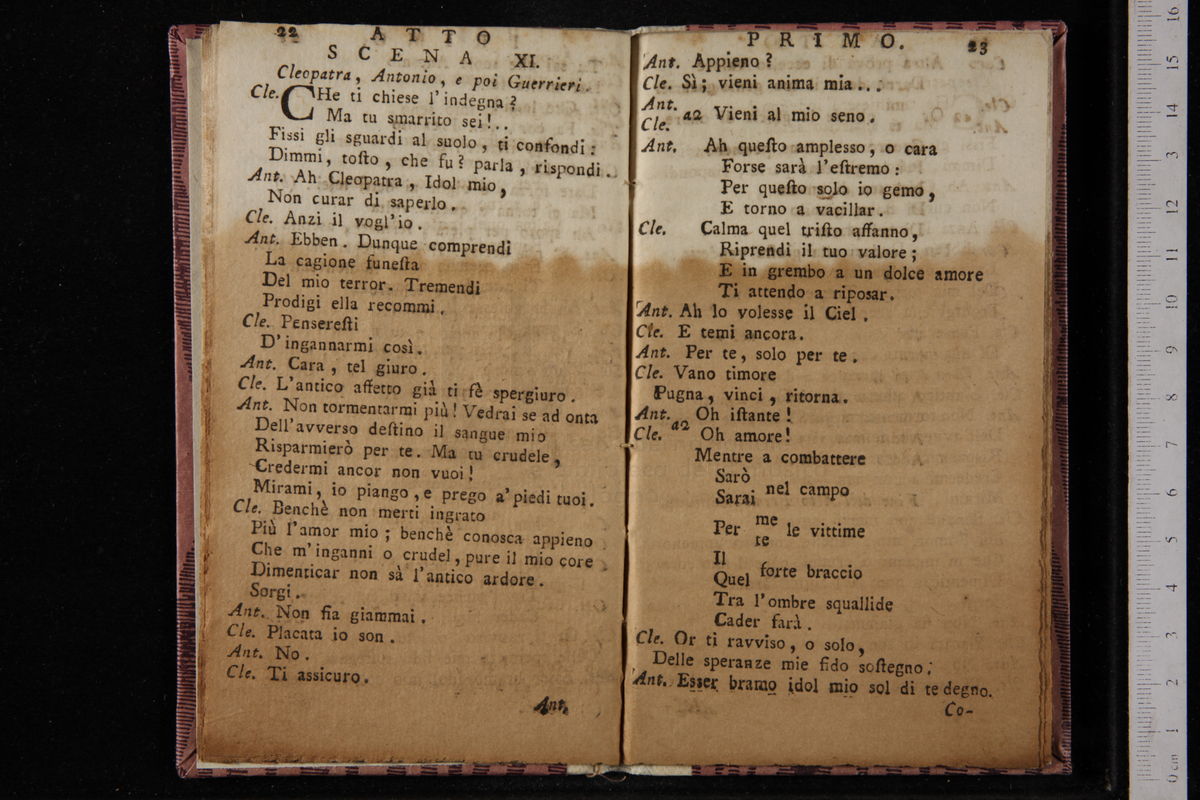 22 ATTO
SCENA XI.
Cleopatra, Antonio, e poi Guerrieri.
Cle. CHe ti chiese l'indegna?
Ma tu smarrito sei!..
Fissi gli sguardi al suolo, ti confondi:
Dimmi, toſto, che fu? parla, rispondi.
Ant. Ah Cleopatra, Idol mio,
Non curar di saperlo.
Cle. Anzi il vogl'io.
Ant. Ebben. Dunque comprendi
La cagione funeſta
Del mio terror. Tremendi
Prodigi ella recommi.
Cle. Pensereſti
D'ingannarmi così.
Ant. Cara, tel giuro.
Cle. L'antico affetto già ti fè spergiuro.
Ant. Non tormentarmi più! Vedrai se ad onta
Dell'avverso deſtino il sangue mio
Risparmierò per te. Ma tu crudele,
Credermi ancor non vuoi!
Mirami, io piango, e prego a' piedi tuoi.
Cle. Benchè non merti ingrato
Più l'amor mio; benchè conosca appieno
Che m'inganni o crudel, pure il mio core
Dimenticar non sà l'antico ardore.
Sorgi.
Ant. Non fia giammai.
Cle. Placata io son.
Ant. No.
Cle. Ti assicuro.
Ant.
PRIMO. 23
Ant. Appieno?
Cle. Sì; vieni anima mia...
Ant.
Cle. a2 Vieni al mio seno.
Ant. Ah queſto amplesso, o cara
Forse sarà l'eſtremo:
Per queſto solo io gemo,
E torno a vacillar.
Cle. Calma quel triſto affanno,
Riprendi il tuo valore;
E in grembo a un dolce amore
Ti attendo a riposar.
Ant. Ah lo volesse il Ciel.
Cle. E temi ancora.
Ant. Per te, solo per te.
Cle. Vano timore
Pugna, vinci, ritorna.
Ant. Oh iſtante!
Cle. a2 Oh amore!
Mentre a combattere
Sarò
Sarai nel campo
Per me le vittime
te
Il
Quel forte braccio
Tra l'ombre squallide
Cader farà.
Cle. Or ti ravviso, o solo,
Delle speranze mie fido soſtegno;
Ant. Esser bramo idol mio sol di te degno.
Co-
16
15
14
13
12
11
10
9
8
7
6
5
4
3
2
1
0 cm